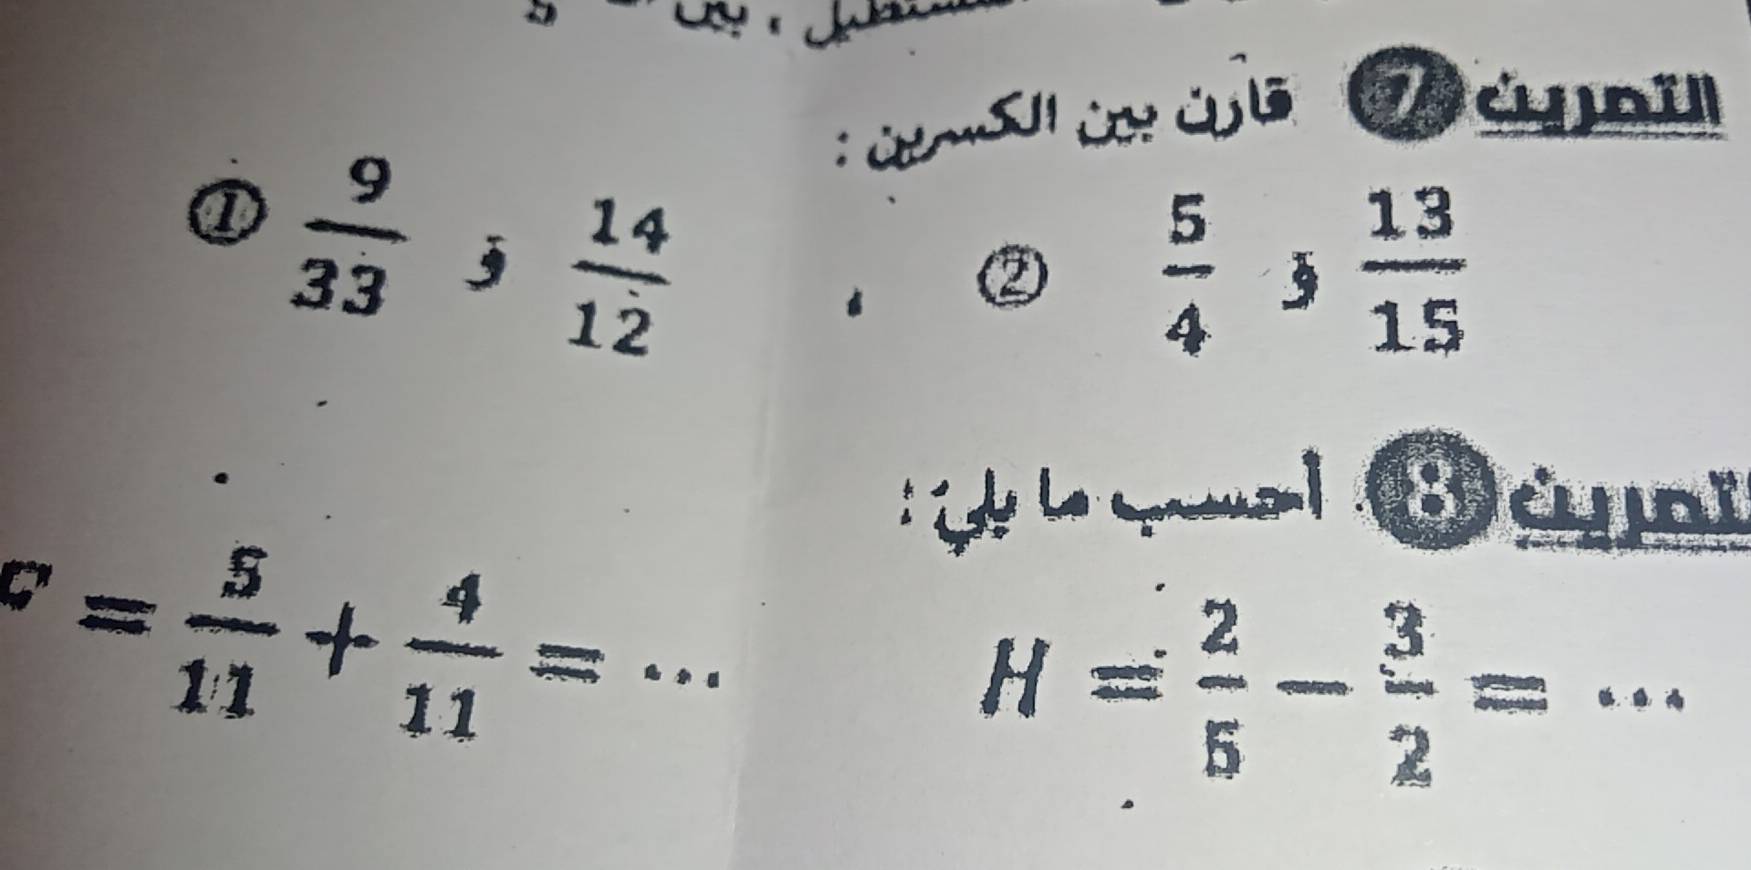 التمرين 7 قارن بين الكسرين :
① 9/33 و 14/12 ، ② 5/4 و 13/15
تمرين 8 أحسب ما يلي :
= 5/11 + 4/11 = ...
H = 2/5 - 3/2 = ...